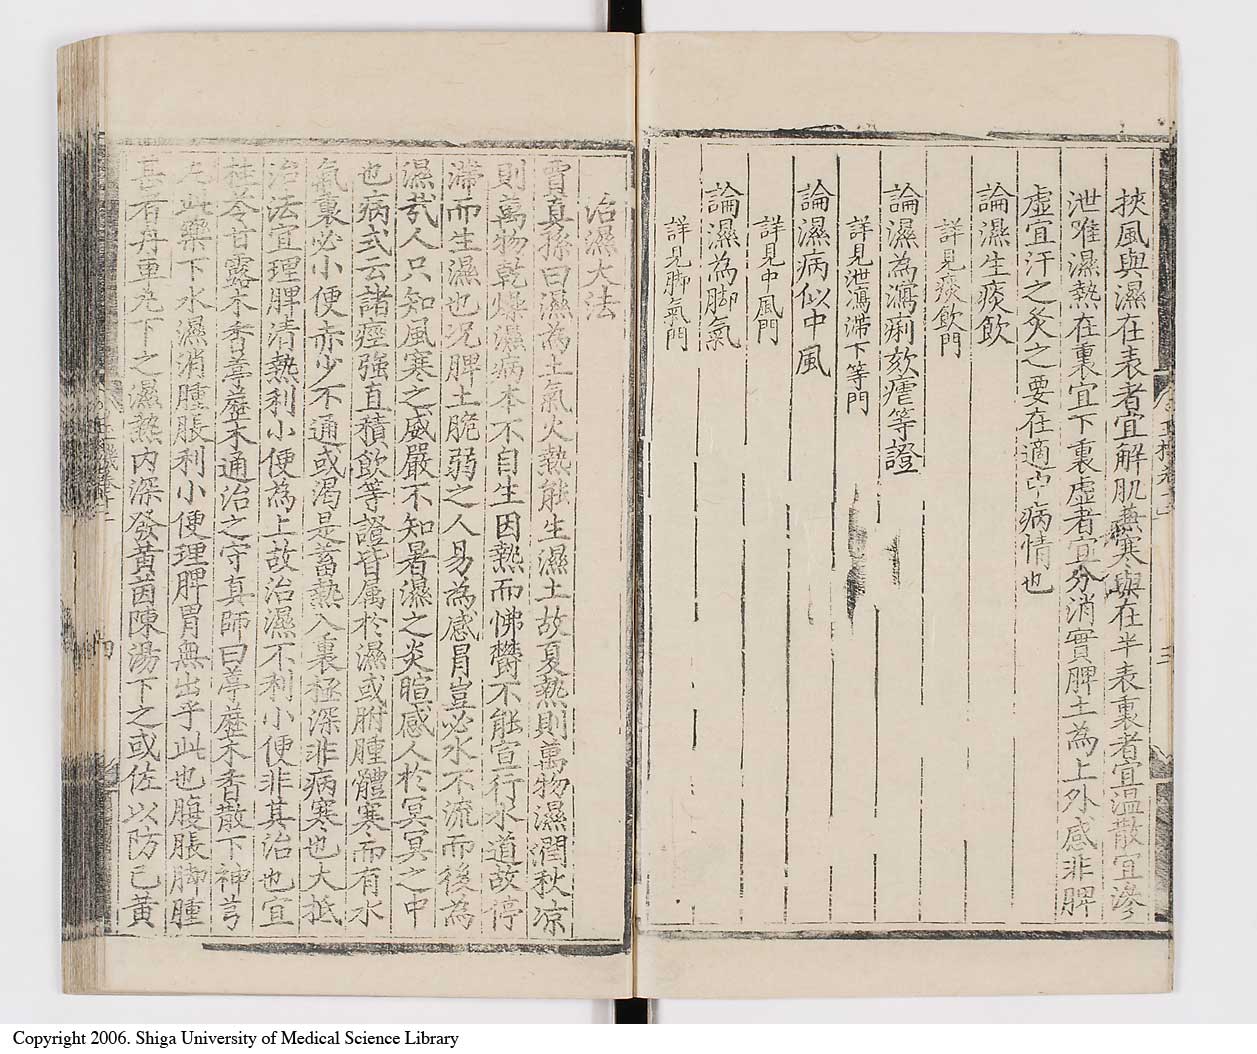 挾風與濕在表者宜解肌兼寒與在半表裏者宜溫散宜滲
泄唯濕熱在裏宜下裏虛者宜分消實脾土為上外感非脾
虛宜汗之灸之要在適中病情也
論濕生痰飲
詳見痰飲門
論濕為瀉痢欬瘧等證
詳見泄瀉滯下等門
論濕病似中風
詳見中風門
論濕為脚氣
詳見脚氣門
治濕大法
賈真孫曰濕為土氣火熱能生濕土故夏熱則萬物濕潤秋凉
則萬物乾燥濕病本不自生因熱而怫欝不能宣行水道故停
滯而生濕也况脾土脆弱之人易為感冒豈必水不流而後為
濕㢤人只知風寒之威嚴不知暑濕之炎暄感人於冥冥之中
也病式云諸痙强直積飲等證皆属於濕或胕腫體寒而有水
氣裏必小便赤少不通或渴是蓄熱入裏極深非病寒也大抵
治法宜理脾清熱利小便為上故治濕不利小便非其治也宜
桂苓甘露木香葶藶木通治之守真師曰葶藶木香散下神芎
丸此藥下水濕消腫脹利小便理脾胃無出乎此也腹脹脚腫
甚者丹車丸下之濕熱内深發黃茵陳湯下之或佐以防己黃
Copyright 2006. Shiga University of Medical Science Library